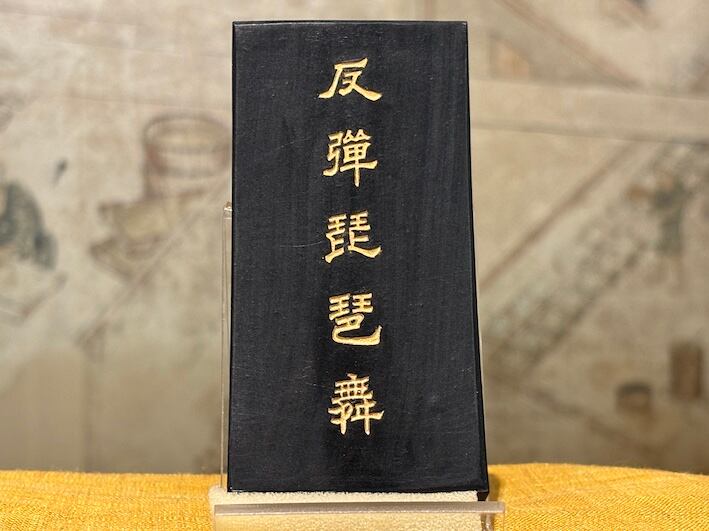 反彈琵琶舞